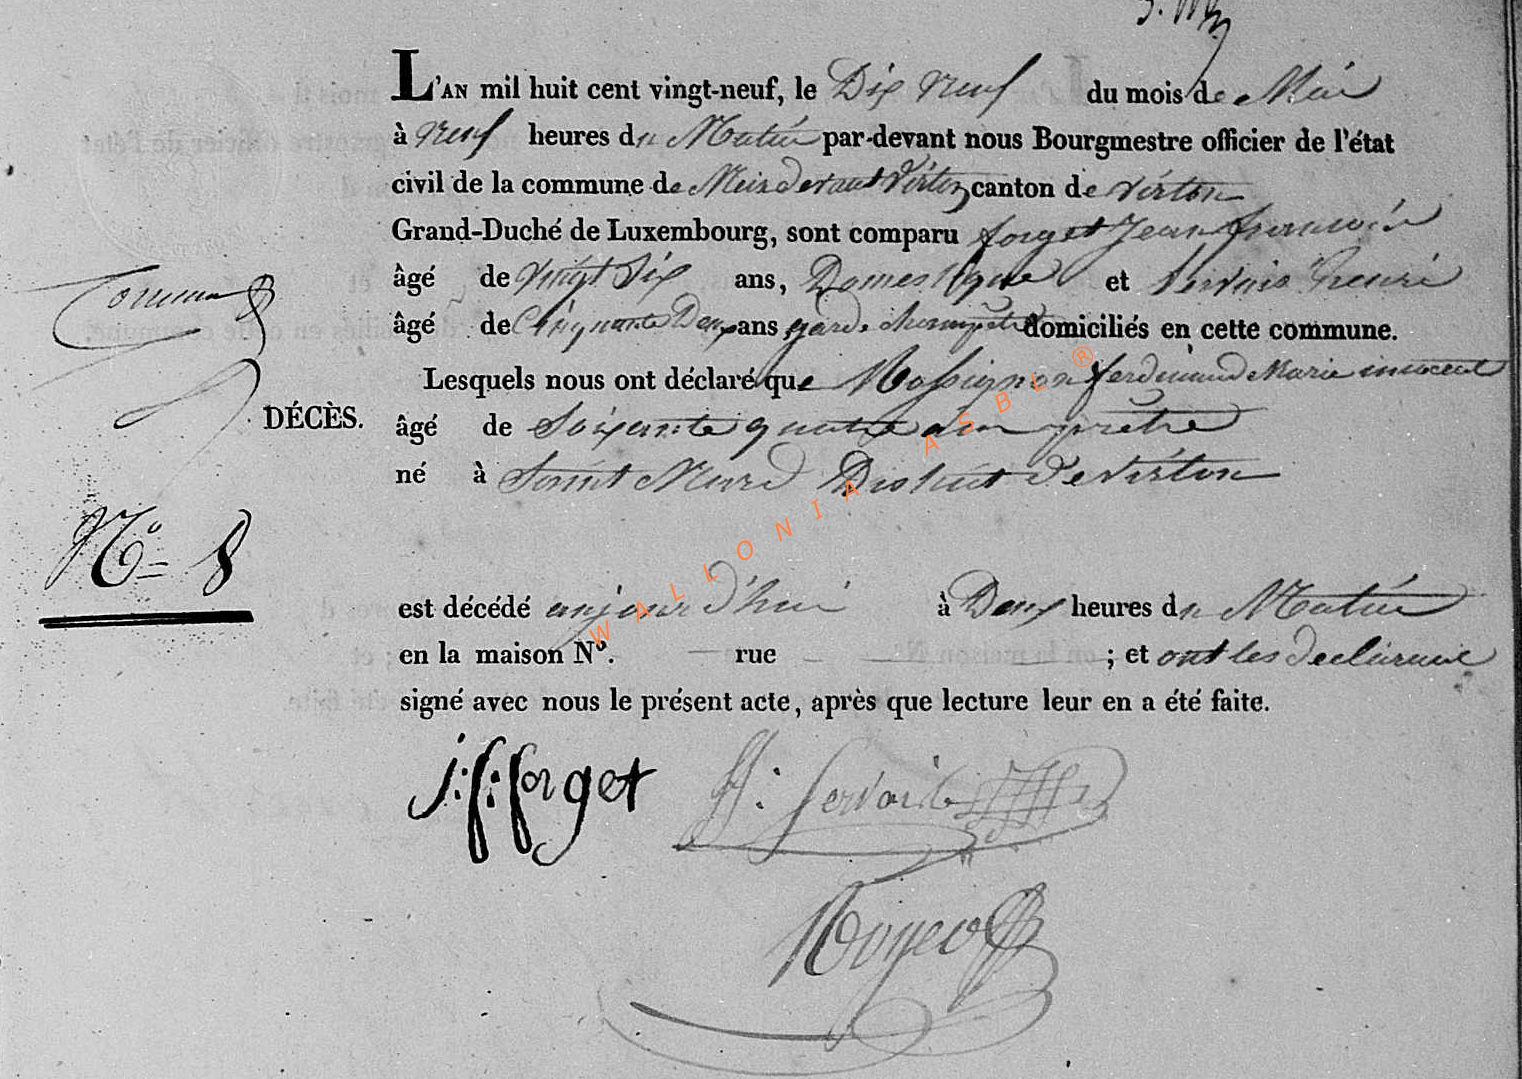 L'AN mil huit cent vingt-neuf, le Dix neuf du mois de Mai
à neuf heures du Matin par-devant nous Bourgmestre officier de l'état
civil de la commune de Meix devant Virton canton de Virton
Grand-Duché de Luxembourg, sont comparu forget Jean francois
âgé de vingt Six ans, Domestique et Servais henri
âgé de Cinquante Deux ans, garde champetre domiciliés en cette commune.
Lesquels nous ont déclaré que Massignon ferdinand Marie innocent
DÉCÈS.
âgé de Soixante quatre ans prêtre
né à Saint Mard District de Virton
N° 8
est décédé aujourd'hui à Deux heures du Matin
en la maison N°. rue ; et ont les declarant
signé avec nous le présent acte, après que lecture leur en a été faite.
j: f: forget H: Servais
WALLONIA ASBL ®